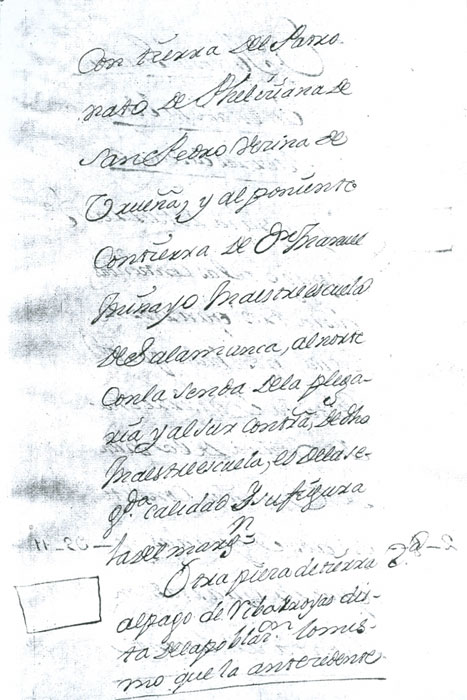 Con tierra del Patro
nato de Pheliziana de
San Pedro vezina de
Trueña, y al poniente
Con tierra de Dn. Manuel
Maestreescuela
de Salamanca, al norte
Con la senda de la plega-
ria y al sur con tra. de dho
Maestreescuela; es de la se-
gda. calidad Y su figura
la del margn.
Otra pieza de tierra
al pago de dis-
ta de la poblacon. lo mis-
mo que la antezedente